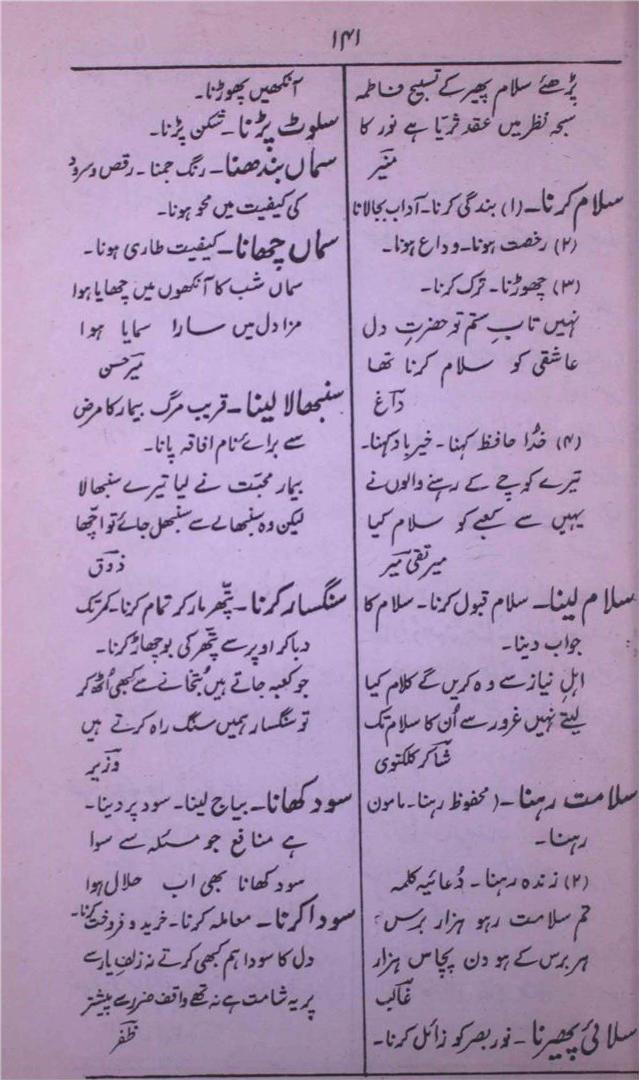 ۱۴۱
پڑھئے سلام پھیر کے تسبیح فاطمہ
سبحہ نظر میں عقد ثریا ہے نور کا
منیر
سلام کرنا۔ (۱) بندگی کرنا۔ آداب بجالانا
(۲) رخصت ہونا۔ وداع ہونا۔
(۳) چھوڑنا۔ ترک کرنا۔
نہیں تابِ ستم تو حضرتِ دل
عاشقی کو سلام کرنا تھا
داغ
(۴) خدُا حافظ کہنا۔ خیرباد کہنا۔
تیرے کوچے کے رہنے والوں نے
یہیں سے کعبے کو سلام کیا
میر تقی میر
سلام لینا۔ سلام قبول کرنا۔ سلام کا
جواب دینا۔
اہلِ نیاز سے وہ کریں گے کلام کیا
لیتے نہیں غرور سے اُن کا سلام تک
شاکر کلکتوی
سلامت رہنا۔ (محفوظ رہنا۔ مامون
رہنا۔
(۲) زندہ رہنا۔ دُعائیہ کلمہ
تم سلامت رہو ہزار برس
ہر برس کے ہو دن پچاس ہزار
غالب
سلائی پھیرنا۔ نور بصر کو زائل کرنا۔
آنکھیں پھوڑنا۔
سلوٹ پڑنا۔ شکن پڑنا۔
سماں بندھنا۔ رنگ جمنا۔ رقص و سرود
کی کیفیت میں محو ہونا۔
سماں چھانا۔ کیفیت طاری ہونا۔
سماں شب کا آنکھوں میں چھایا ہوا
مزا دل میں سارا سمایا ہوا
میر حسن
سنبھالا لینا۔ قریب مرگ بیمار کا مرض
سے برائے نام افاقہ پانا۔
بیمار محبت نے لیا تیرے سنبھالا
لیکن وہ سنبھالے سے سنبھل جائے تو اچھا
ذوق
سنگسار کرنا۔ پتھر مار کر تمام کرنا۔ کمر تک
دبا کر اوپر سے پتھر کی بوچھاڑ کرنا۔
جو کعبہ جاتے ہیں بُتخانے سے کبھی اُٹھ کر
تو سنگسار ہمیں سنگ راہ کرتے ہیں
وزیر
سود کھانا۔ بیاج لینا۔ سود پر دینا۔
ہے منافع جو مسکہ سے سوا
سود کھانا بھی اب حلال ہوا
سودا کرنا۔ معاملہ کرنا۔ خرید و فروخت کرنا۔
دل کا سودا ہم کبھی کرتے نہ زلفِ یار سے
پر یہ شامت ہے نہ تھے واقف ضرر سے پیشتر
ظفر